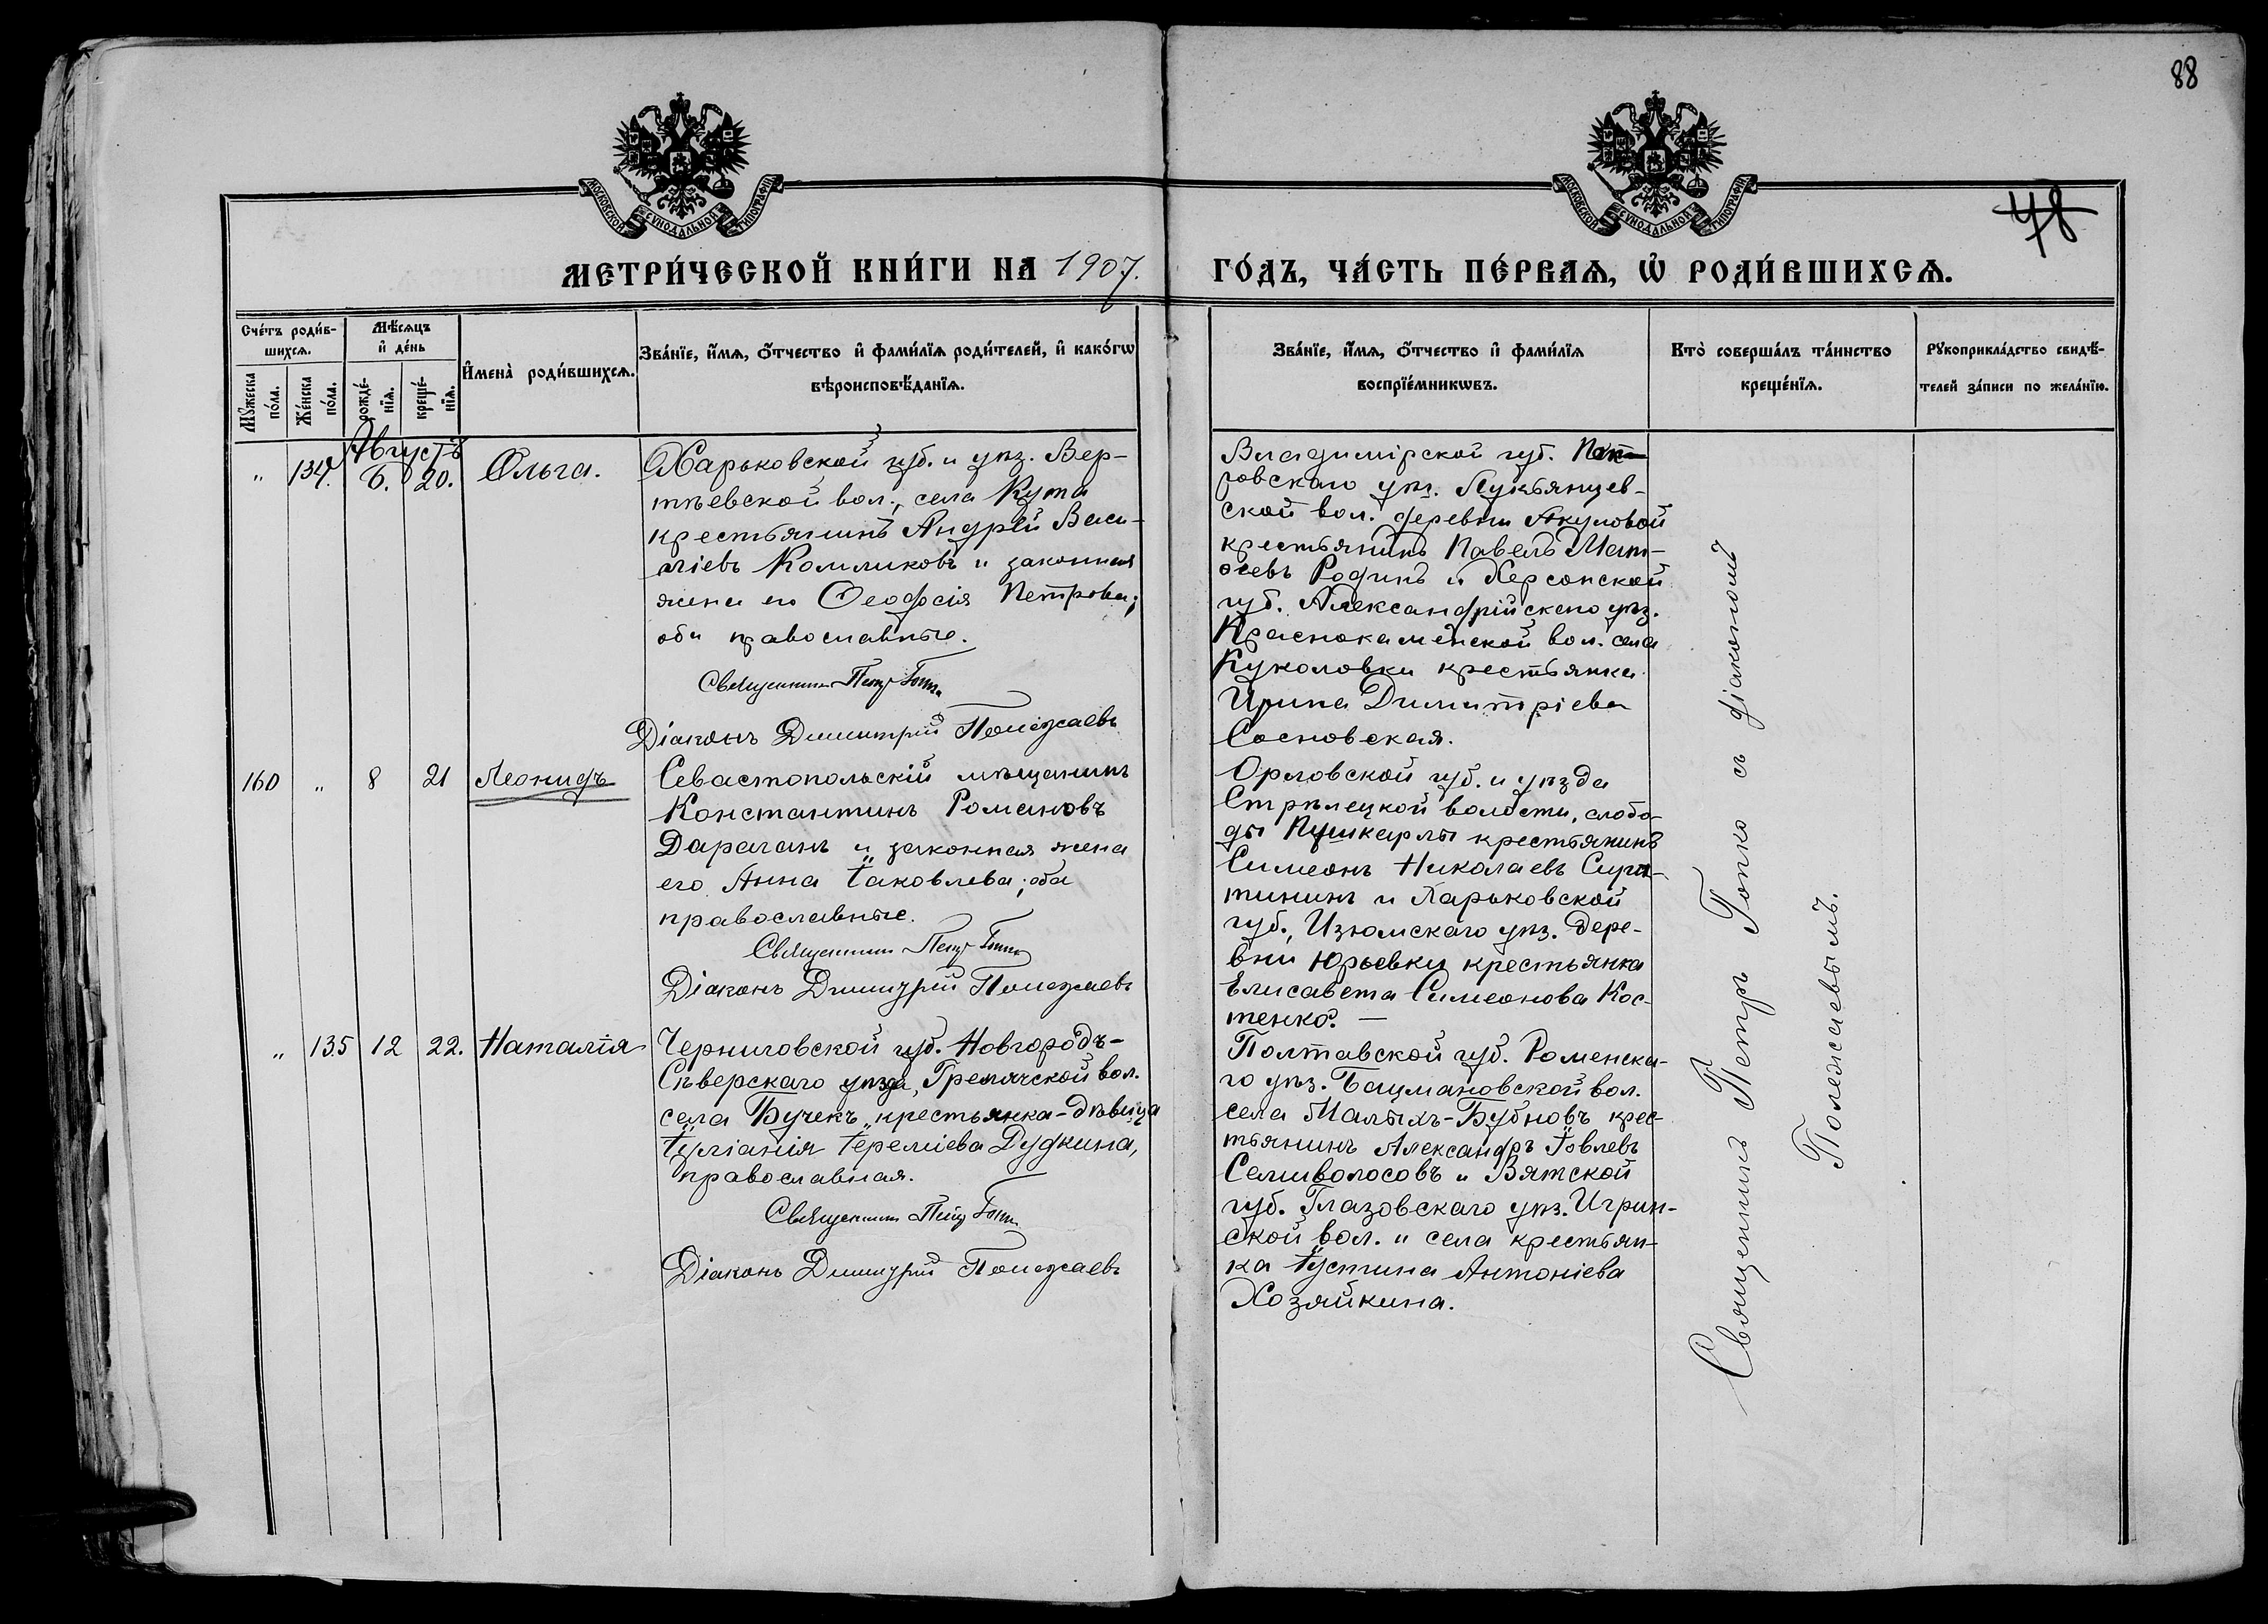 88
МОСКОВСКОЙ СѴНОДАЛЬНОЙ ТИПОГРАФІИ
МОСКОВСКОЙ СѴНОДАЛЬНОЙ ТИПОГРАФІИ
78
МЕТРИ́ЧЕСКОЙ КНИ́ГИ НА 1907. ГО́ДЪ, ЧА́СТЬ ПЕ́РВАѦ, Ѡ҆ РОДИ́ВШИХСѦ.
Сче́тъ роди́в-
шихсѧ.
Мꙋ́жеска
по́ла.
Же́нска
по́ла.
Мѣ́сѧцъ
и҆ де́нь
рожде́-
нїѧ.
креще́-
нїѧ.
И҆мена̀ роди́вшихсѧ.
Зва́нїе, и҆́мѧ, ѻ҆́тчество и҆ фами́лїѧ роди́телей, и҆ како́гѡ
вѣроисповѣ́данїѧ.
Зва́нїе, и҆́мѧ, ѻ҆́тчество и҆ фами́лїѧ
воспрїе́мникѡвъ.
Кто̀ соверша́лъ та́инство
креще́нїѧ.
Рꙋкоприкла́дство свидѣ́-
телей за́писи по жела́нїю.
Августъ
„ 134. 6. 20. Ольга.
Харьковской губ. и уѣз. Вер-
тѣевской вол., села Кута
крестьянинъ Андрей Васи-
ліевъ Комликовъ и законная
жена его Ѳеофсія Петрова;
оба православные.
Священникъ Петръ Гопко
Діаконъ Димитрій Полежаевъ
Владимірской губ. Пок-
ровскаго уѣз. Лукьянцев-
ской вол. деревни Акуловой
крестьянинъ Павелъ Мат-
ѳеевъ Родинъ и Херсонской
губ. Александрійскаго уѣз.
Краснокаменской вол. села
Куколовки крестьянка
Ирина Димитріева
Сосновская.
160 „ 8 21 Леонидъ
Севастопольскій мѣщанинъ
Константинъ Романовъ
Дараганъ и законная жена
его Анна Іаковлева; оба
православные.
Священникъ Петръ Гопко
Діаконъ Димитрій Полежаевъ
Орловской губ. и уѣзда
Стрѣлецкой волости, слобо-
ды Пушкарлы крестьянинъ
Симеонъ Николаевъ Сиро-
тининъ и Харьковской
губ., Изюмскаго уѣз. Дере-
вни Юрьевки крестьянка
Елисавета Симеонова Кос-
тенко. —
„ 135 12 22. Наталія
Черниговской губ. Новгородъ-
Сѣверскаго уѣзда, Гремячской вол.
села Бучекъ крестьянка-дѣвица
Іуліанія Іереміева Дудкина,
православная.
Священникъ Петръ Гопко
Діаконъ Димитрій Полежаевъ
Полтавской губ. Роменска-
го уѣз. Бацмановской вол.
села Малыхъ-Бубновъ крес-
тьянинъ Александръ Іовлевъ
Семиволосовъ и Вятской
губ. Глазовскаго уѣз. Игрин-
ской вол. и села крестьян-
ка Іустина Антоніева
Хозяйкина.
Священникъ Петръ Гопко съ діакономъ
Полежаевымъ.